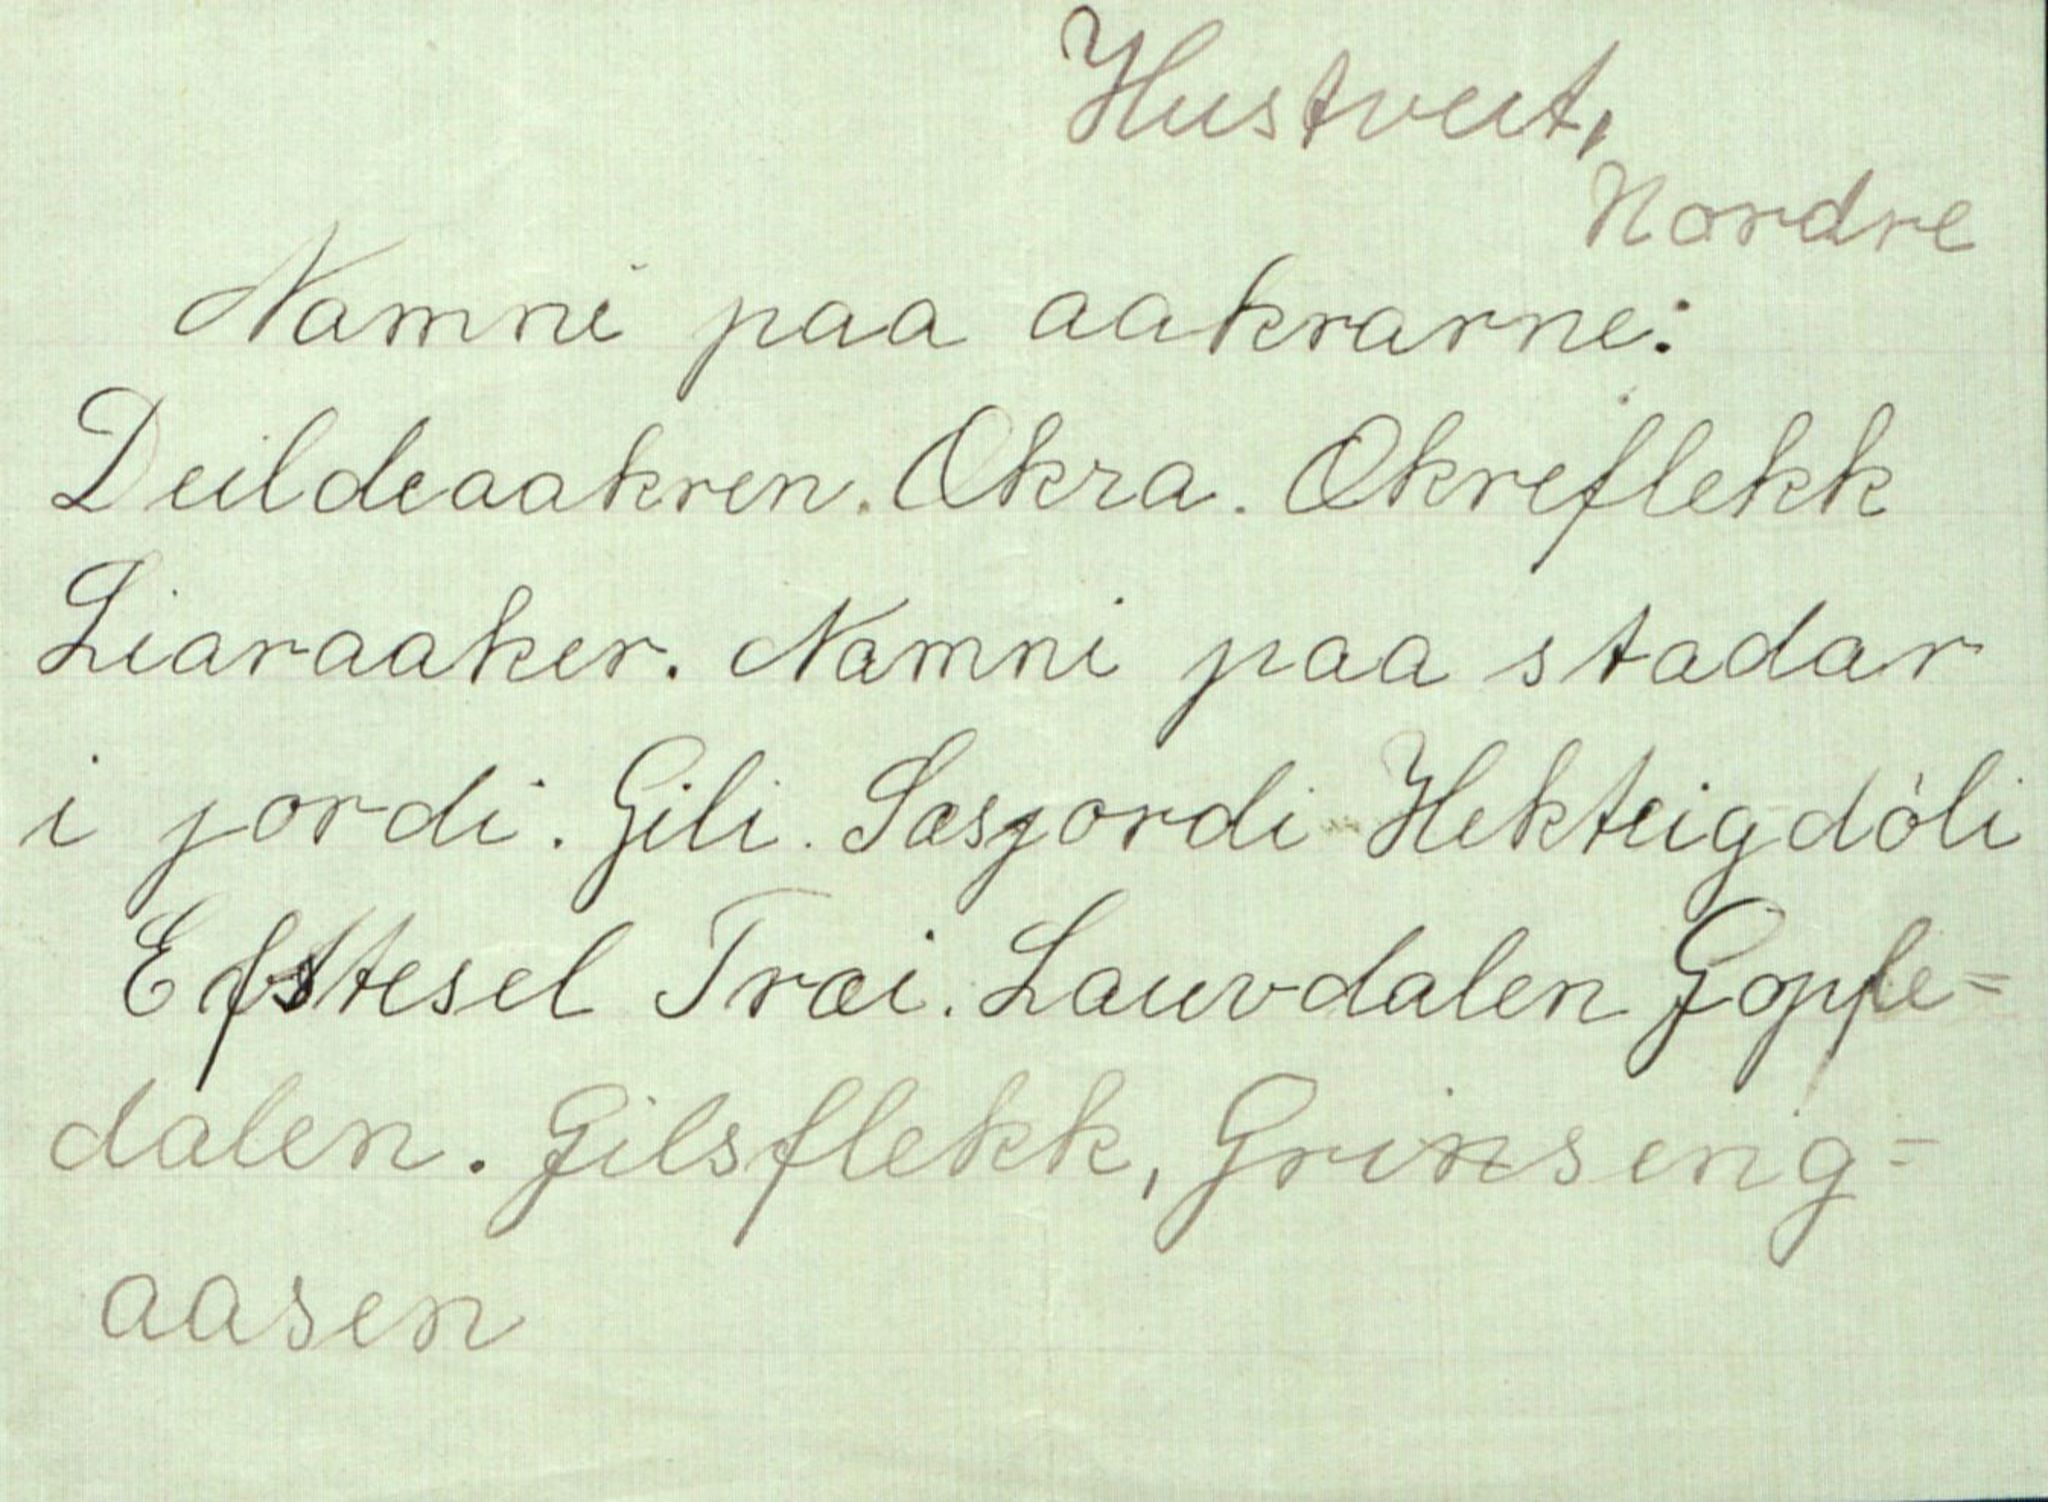 Hustveit,
Nordre
Namni paa aakrarne:
Deildeaakren. Økra. Økreflekk
Liaraaker. Namni paa stadar
i jordi. Gili. Sæsjordi Hekteigdòli
Efstesel Træi. Lauvdalen Gople=
dalen. Gilsflekk, Grinseng=
aasen